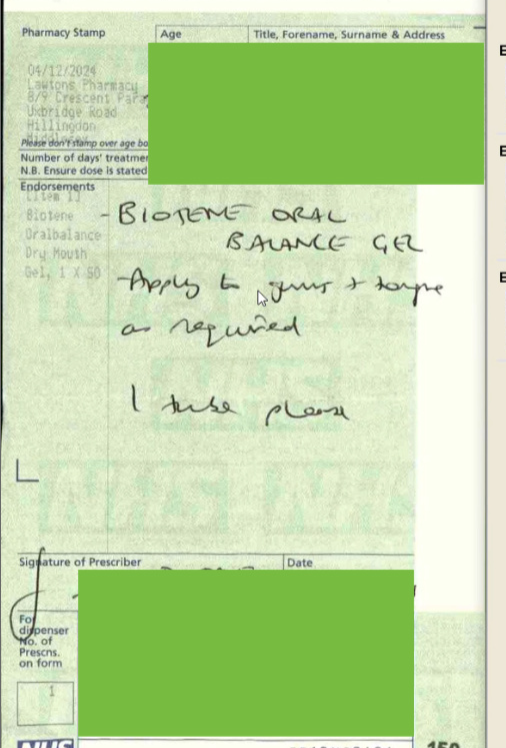 Pharmacy Stamp
Age
Title, Forename, Surname & Address
04/12/2024
Lawtons Pharmacy
8/9 Crescent Para
Uxbridge Road
Hillingdon
Please don't stamp over age bo
Number of days' treatmen
N.B. Ensure dose is stated
Endorsements
[Item 1]
Biotene
Oralbalance
Dry Mouth
Gel, 1 X 50
- BIOTENE ORAL
BALANCE GEL
- Apply to gums + tongue
as required
1 tube please
Signature of Prescriber
Date
For
dispenser
No. of
Prescns.
on form
1
NHS
E
E
E